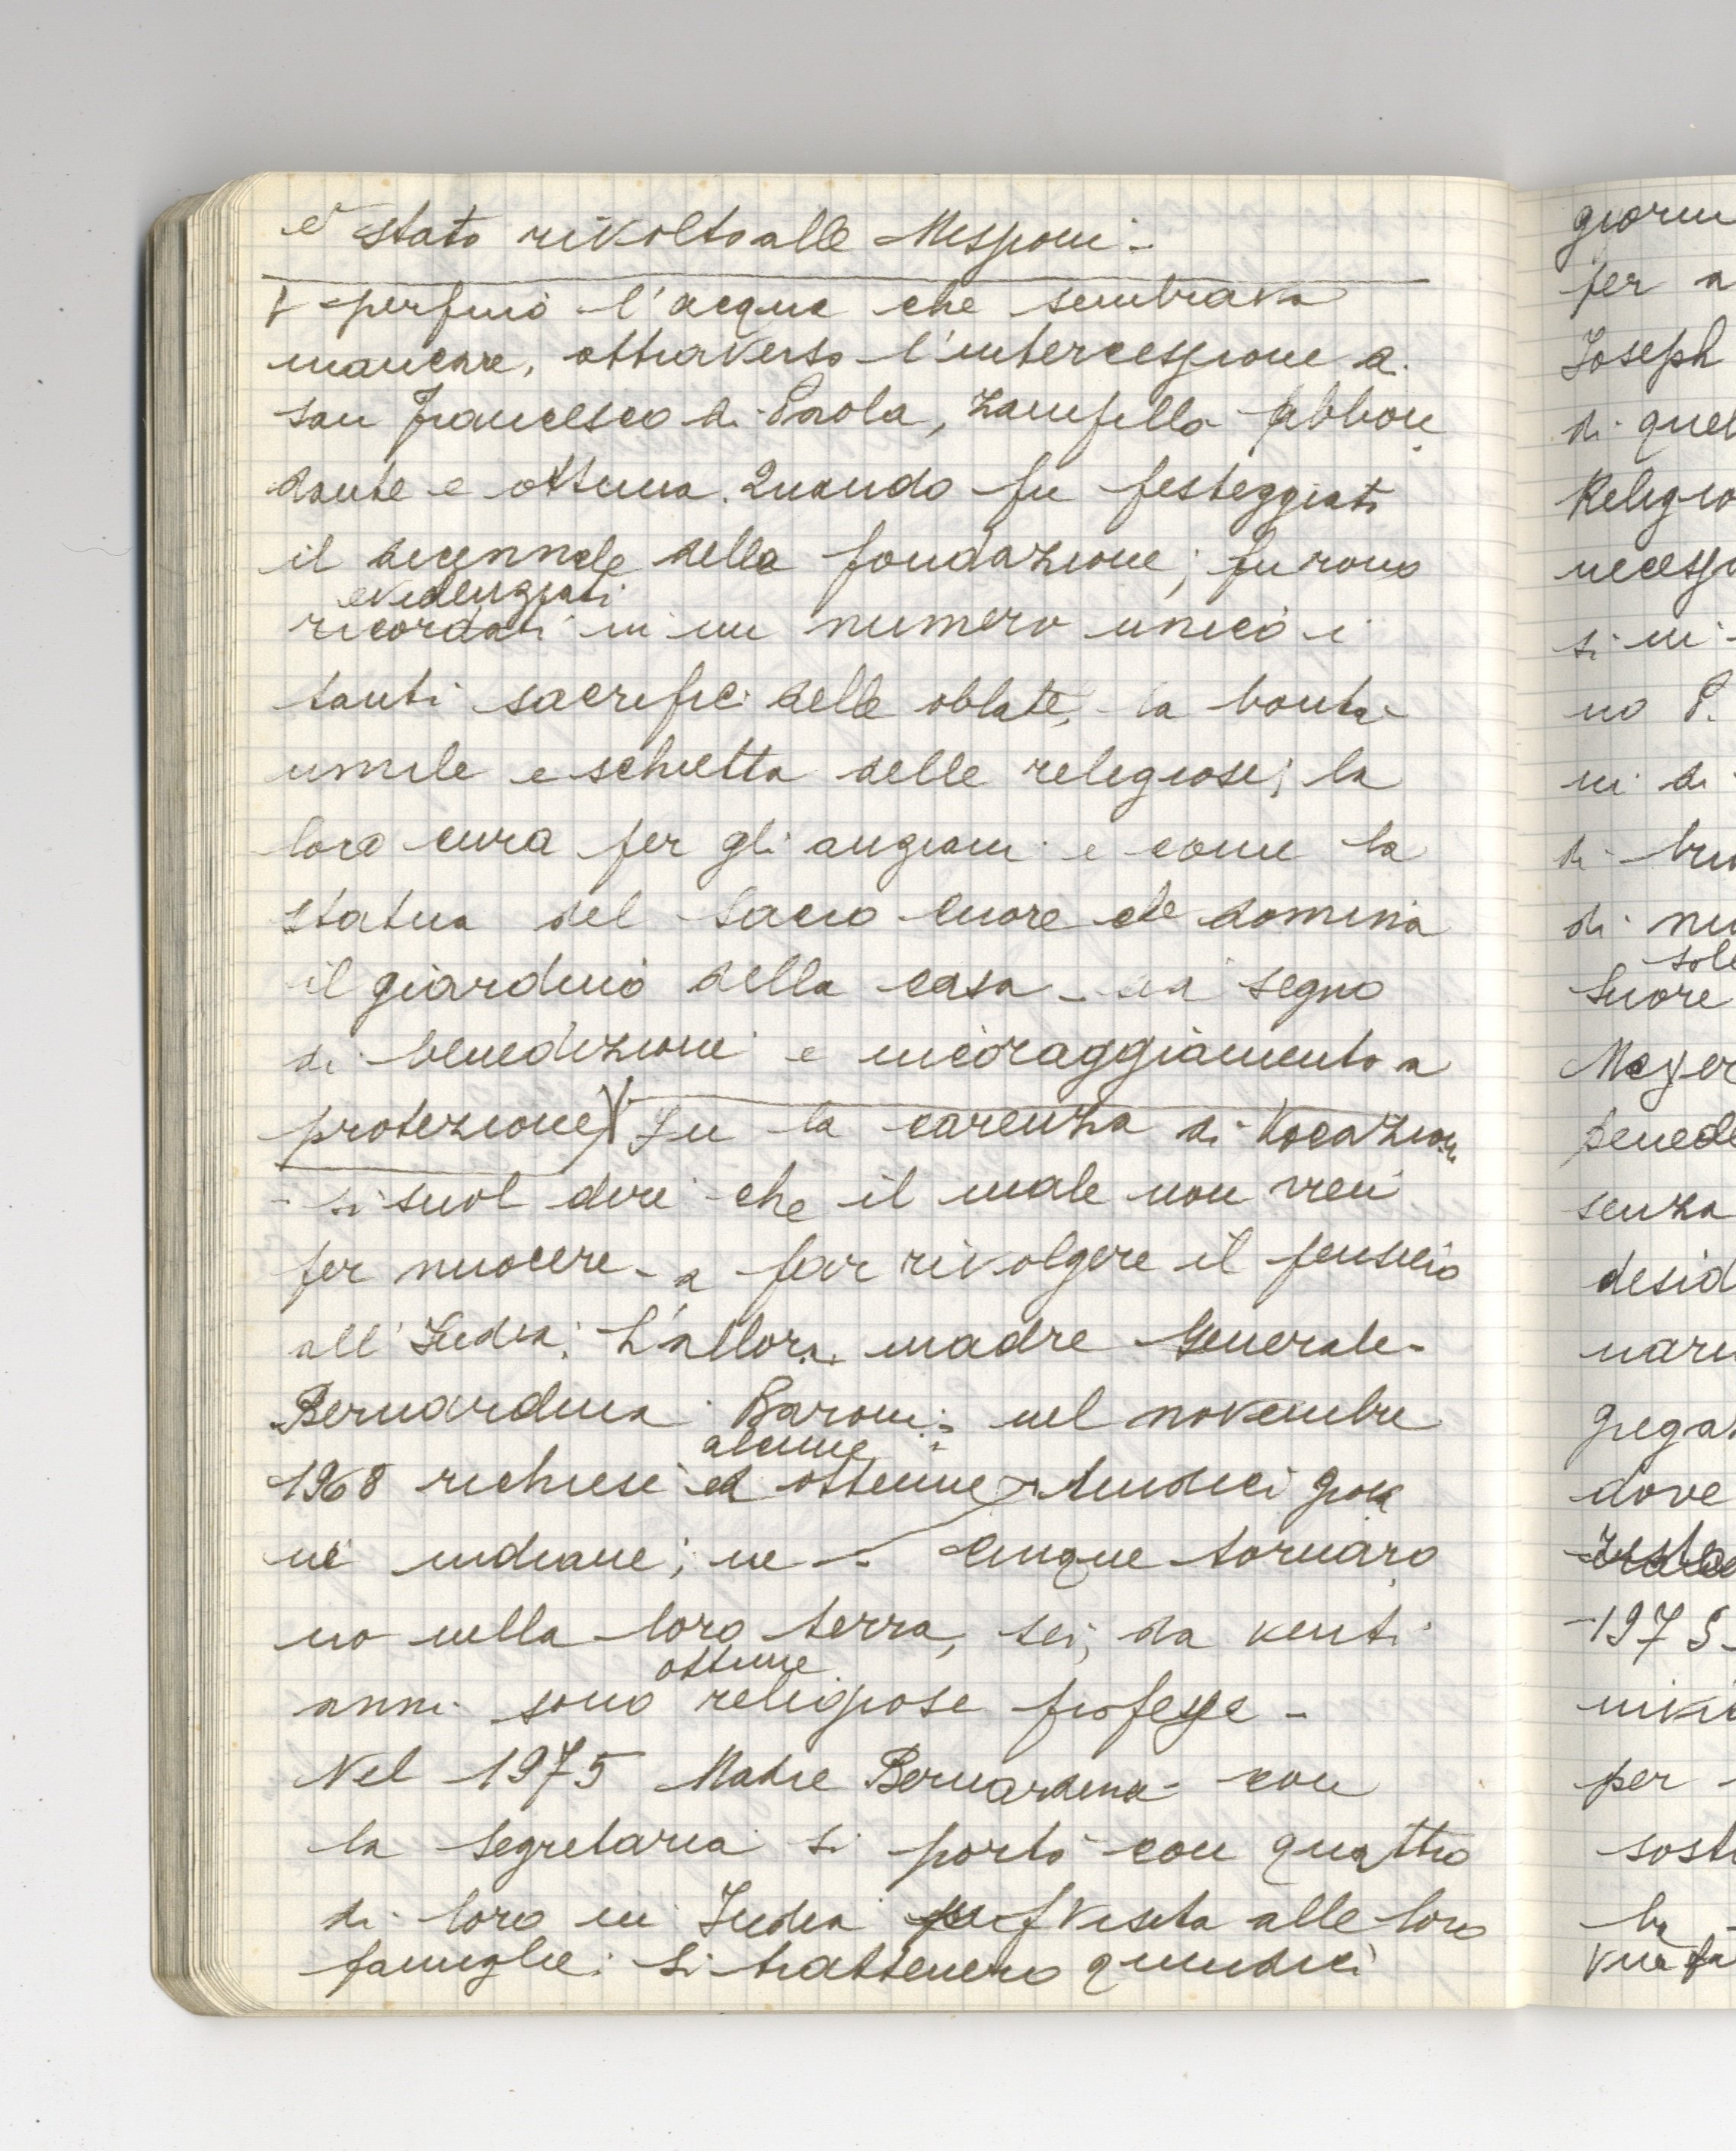 e' stato rivolto alle Missioni -
perfino l'acqua che sembrava
mancare, attraverso l'intercessione a.
san Francesco di Paola, zampilla abbon
dante e ottima. Quando fu festeggiato
il decennale della fondazione; furono
evidenziati
ricordati in un numero unico i
tanti sacrifici delle oblate, la bontà
umile e schietta delle religiose; la
loro cura per gli anziani e come la
statua del Sacro Cuore che domina
il giardino della casa - sia segno
di benedizione e incoraggiamento a
protezione) Fu la carenza di vocazioni
- si suol dire che il male non vien
per nuocere - a far rivolgere il pensiero
all'India. L'allora madre Generale -
Bernardina Baroni; nel novembre
alcune
1968 richiese ed ottenne undici giova
ni indiane; ne - cinque tornaro
no nella loro terra, sei, da venti
ottime
anni sono religiose professe -
Nel 1975 Madre Bernardina - con
la segretaria si portò con quattro
di loro in India visita alle loro
famiglie. Si trattenero quindici
giorni
per a
Joseph
di quel
Religio
necess
si in
no P.
ni di
di
di nu
sole
Suore
Mayer
bened
senza
desid
nari
gregaz
dove
1975
per
sost